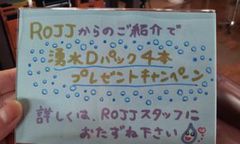 ROJJからのご紹介で
湧水Dパック4本
プレゼントキャンペーン
詳しくは、ROJJスタッフに
おたずね下さい